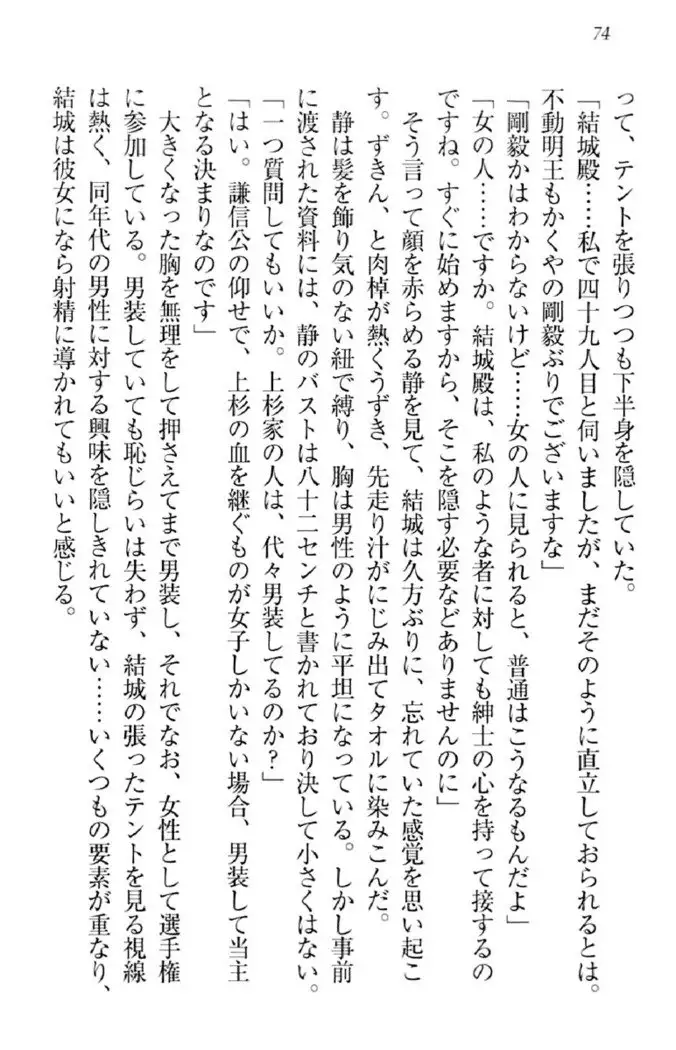 74
って、テントを張りつつも下半身を隠していた。
「結城殿……私で四十九人目と伺いましたが、まだそのように直立しておられるとは。
不動明王もかくやの剛毅ぶりでございますな」
「剛毅かはわからないけど……女の人に見られると、普通はこうなるもんだよ」
「女の人……ですか。結城殿は、私のような者に対しても紳士の心を持って接するの
ですね。すぐに始めますから、そこを隠す必要などありませんのに」
そう言って顔を赤らめる静を見て、結城は久方ぶりに、忘れていた感覚を思い起こ
す。ずきん、と肉棹が熱くうずき、先走り汁がにじみ出てタオルに染みこんだ。
静は髪を飾り気のない紐で縛り、胸は男性のように平坦になっている。しかし事前
に渡された資料には、静のバストは八十二センチと書かれており決して小さくはない。
「一つ質問してもいいか。上杉家の人は、代々男装してるのか？」
「はい。謙信公の仰せで、上杉の血を継ぐものが女子しかいない場合、男装して当主
となる決まりなのです」
大きくなった胸を無理をして押さえてまで男装し、それでなお、女性として選手権
に参加している。男装していても恥じらいは失わず、結城の張ったテントを見る視線
は熱く、同年代の男性に対する興味を隠しきれていない……いくつもの要素が重なり、
結城は彼女になら射精に導かれてもいいと感じる。